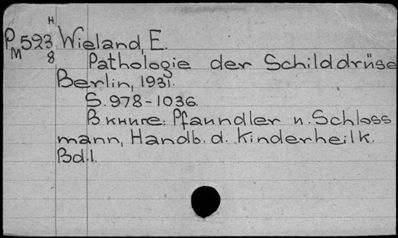 H
P 523 Wieland, E.
M 8
Pathologie der Schilddrüse
Berlin, 1931.
S. 978-1036.
В книге: Pfaundler u. Schloss
mann, Handb. d. Kinderheilk.
Bd.I.